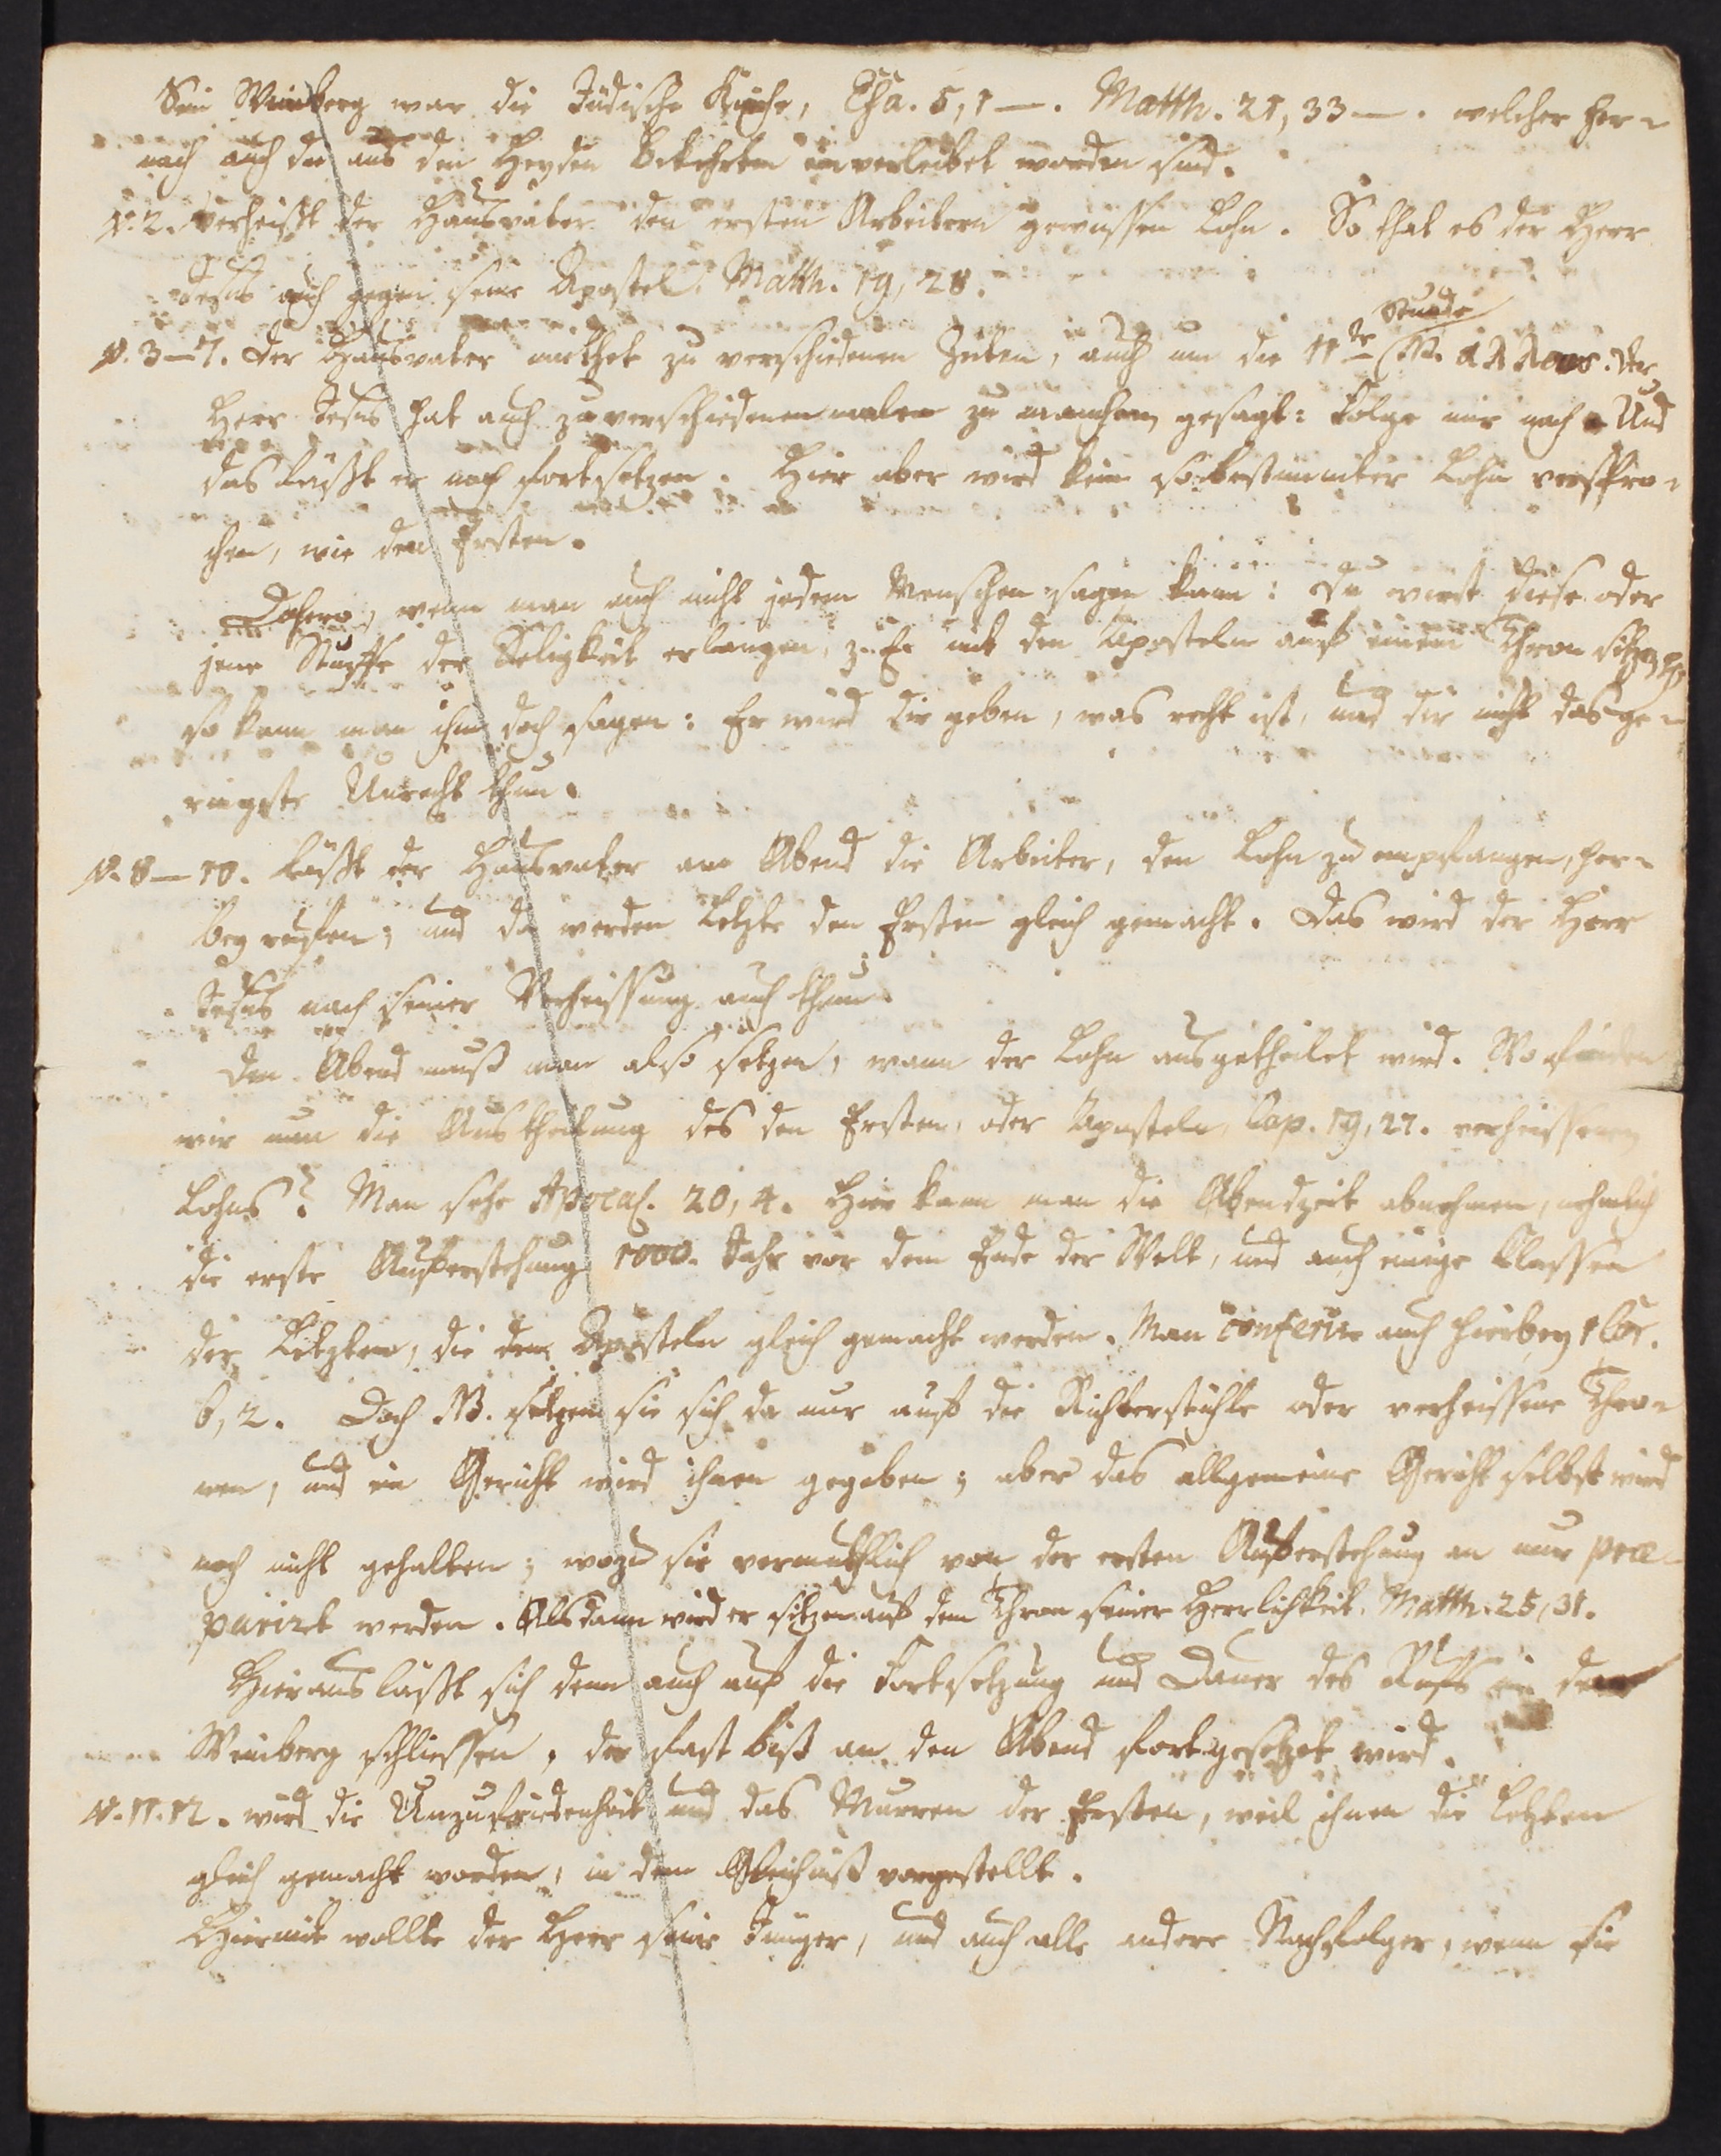 Sein Weinberg war die Jüdische Kirche, Esa. 5, 1 —. Matth. 21, 33 —. welcher her-
nach auch die aus den Heyden Bekehrten einverleibet worden sind.
v. 2. verheißt der Hausvater den ersten Arbeitern gewissen Lohn. So that es der Herr
Jesus auch gegen seine Apostel. Matth. 19, 28.
Stunde
v. 3—7. Der Hausvater miethet zu verschiedenen Zeiten, auch um die 11te ἄλλους. Der
Herr Jesus hat auch zu verschiedenen malen zu manchem gesagt: Folge mir nach. Und
das läßt er noch fortsetzen. Hier aber wird kein so bestimmter Lohn verspro-
chen, wie den Ersten.
Dahero, wenn man auch nicht jedem Menschen sagen kann: Du wirst diese oder
jene Stuffe der Seligkeit erlangen, z. E. mit den Aposteln auf einem Thron sitzen
so kann man ihm doch sagen: Er wird dir geben, was recht ist, und dir nicht das ge-
ringste Unrecht thun.
v. 8—10. läßt der Hausvater am Abend die Arbeiter, den Lohn zu empfangen, her-
bey ruffen; und da werden Letzte den Ersten gleich gemacht. Das wird der Herr
Jesus nach seiner Verheissung auch thun.
Den Abend muß man also setzen, wann der Lohn ausgetheilet wird. Wo finden
wir nun die Austheilung des den Ersten, oder Aposteln, Cap. 19, 27. verheissenen
Lohns? Man sehe Apocal. 20, 4. Hier kann man die Abendzeit abnehmen, nehmlich
die erste Auferstehung 1000. Jahr vor dem Ende der Welt, und auch einige Classen
der Letzten, die den Aposteln gleich gemacht werden. Man conferire auch hierbey 1 Cor.
6, 2. Doch NB. setzen sie sich da nur auf die Richterstühle oder verheissene Thro-
nen, und ein Gericht wird ihnen gegeben; aber das allgemeine Gericht selbst wird
noch nicht gehalten; wozu sie vermuthlich von der ersten Auferstehung an nur præ-
parirt werden. Alsdann wird er sitzen auf dem Thron seiner Herrlichkeit. Matth. 25, 31.
Hieraus läßt sich denn auch auf die Fortsetzung und Dauer des Rufs in den
Weinberg schliessen, der fast biß an den Abend fortgesetzet wird.
v. 11. 12. wird die Unzufriedenheit und das Murren der Ersten, weil ihnen die Letzten
gleich gemacht worden, in dem Gleichniß vorgestellt.
Hiermit wollte der Herr seine Jünger, und auch alle andere Nachfolger, wenn sie